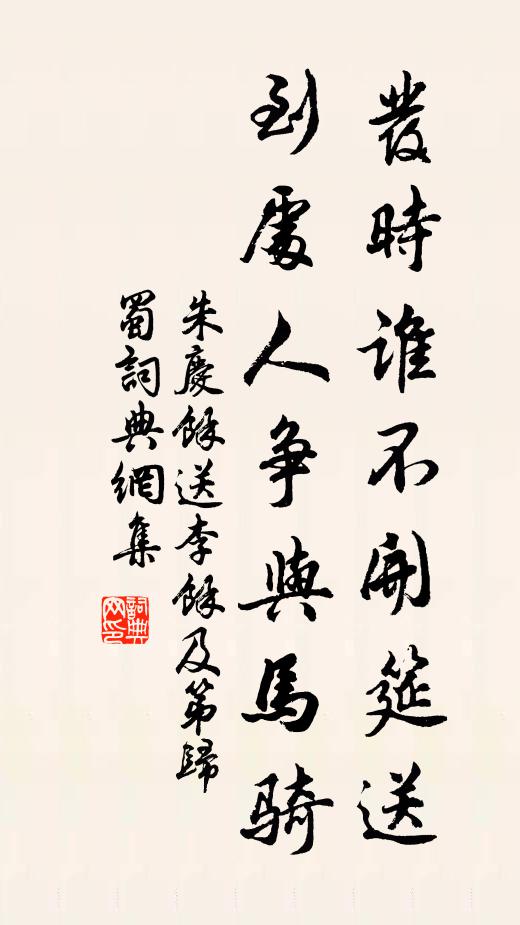 發時誰不開筵送
到處人争與馬騎
朱慶餘送李餘及第歸
蜀詞典網集
詞典
网印